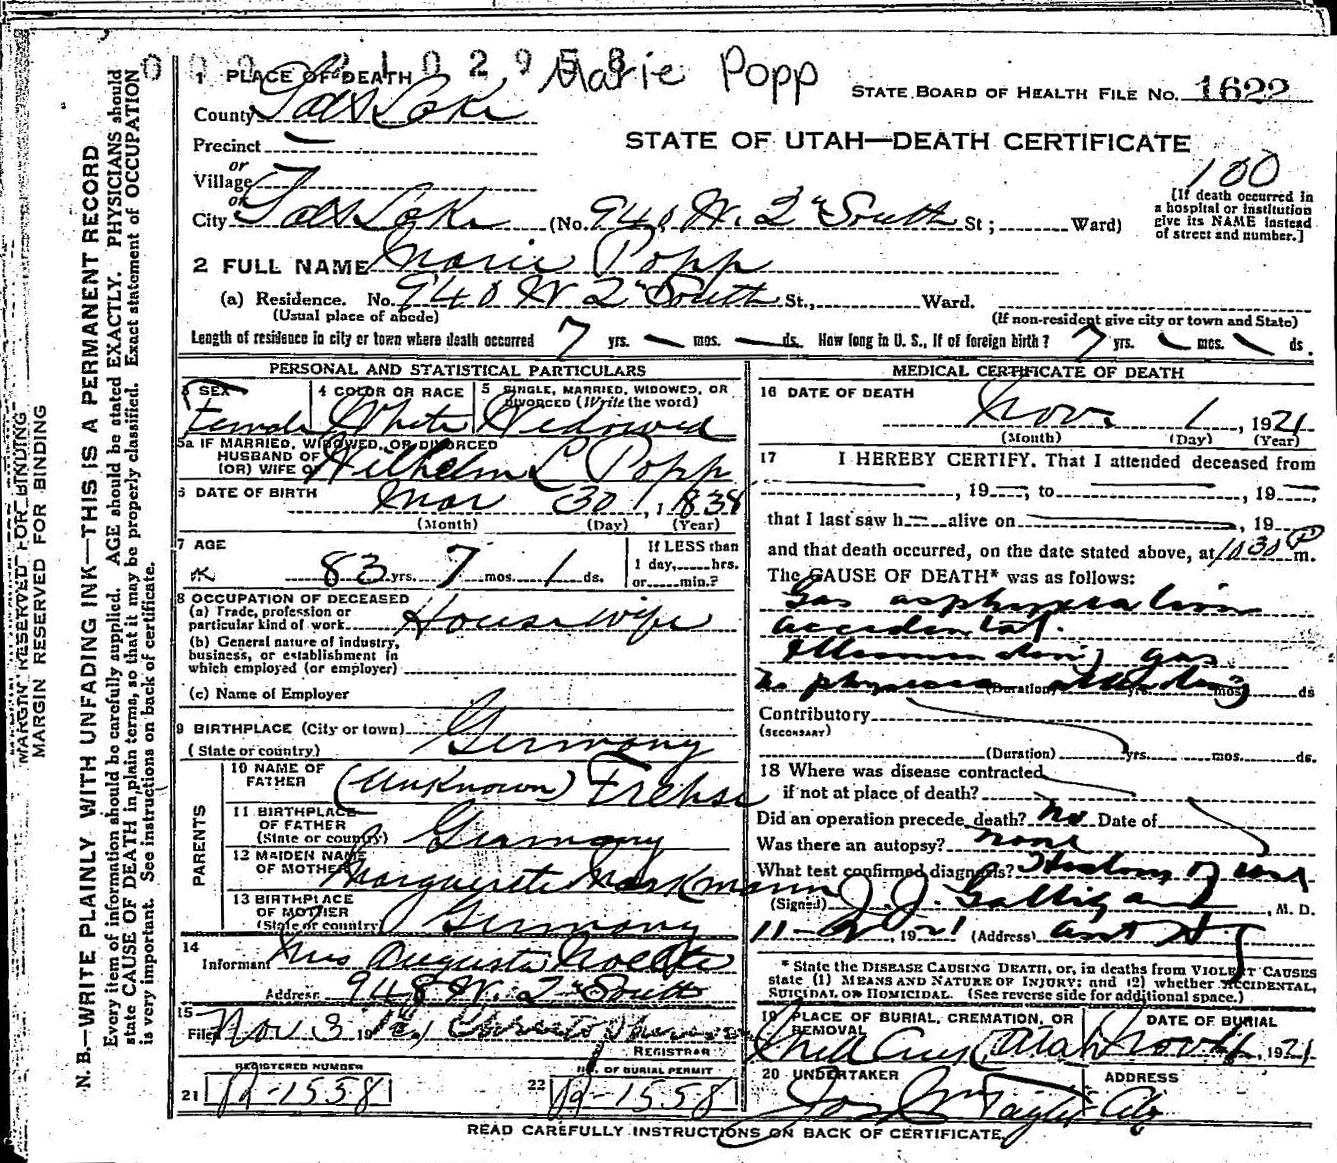 0 0 0 2 1 0 2 9 5 8
Marie Popp
STATE BOARD OF HEALTH FILE NO. 1622
1 PLACE OF DEATH
County Salt Lake
STATE OF UTAH—DEATH CERTIFICATE
Precinct
or
Village
or
100
[If death occurred in a hospital or institution give its NAME instead of street and number.]
City Salt Lake (No. 940 W. 2nd South St; Ward)
2 FULL NAME Marie Popp
(a) Residence. No. 940 W 2nd South St., Ward.
(Usual place of abode) (If non-resident give city or town and State)
Length of residence in city or town where death occurred 7 yrs. — mos. — ds. How long in U. S., if of foreign birth? 7 yrs. — mos. — ds.
PERSONAL AND STATISTICAL PARTICULARS
3 SEX Female
4 COLOR OR RACE White
5 SINGLE, MARRIED, WIDOWED, OR DIVORCED (Write the word) Widowed
5a IF MARRIED, WIDOWED, OR DIVORCED
HUSBAND OF
(OR) WIFE OF Wilhelm L Popp
6 DATE OF BIRTH Mar 30, 1838
(Month) (Day) (Year)
7 AGE 83 yrs. 7 mos. 1 ds.
If LESS than 1 day, hrs. or min.?
8 OCCUPATION OF DECEASED
(a) Trade, profession or particular kind of work House wife
(b) General nature of industry, business, or establishment in which employed (or employer)
(c) Name of Employer
9 BIRTHPLACE (City or town)
(State or country) Germany
PARENTS
10 NAME OF FATHER (Unknown) Frehse
11 BIRTHPLACE OF FATHER (State or country) Germany
12 MAIDEN NAME OF MOTHER Marguerete Markmann
13 BIRTHPLACE OF MOTHER (State or country) Germany
14 Informant Mrs Augusta
Address 948 W. 2nd South
15 Filed Nov 3, 19
REGISTRAR
REGISTERED NUMBER
21 R-1558
NO. OF BURIAL PERMIT
22 R-1558
MEDICAL CERTIFICATE OF DEATH
16 DATE OF DEATH
Nov. 1, 1921
(Month) (Day) (Year)
17 I HEREBY CERTIFY, That I attended deceased from
, 19 , to , 19 ,
that I last saw h alive on , 19
and that death occurred, on the date stated above, at 1030 P m.
The CAUSE OF DEATH* was as follows:
Gas asphyxiation
accidental.
Illuminating gas
No physician attending
(Duration) yrs. mos. ds
Contributory
(SECONDARY)
(Duration) yrs. mos. ds.
18 Where was disease contracted
if not at place of death?
Did an operation precede death? No Date of
Was there an autopsy? none
What test confirmed diagnosis? History of
(Signed) J. J. Galligan, M. D.
11-2, 1921 (Address)
* State the DISEASE CAUSING DEATH, or, in deaths from VIOLENT CAUSES
state (1) MEANS AND NATURE OF INJURY; and (2) whether ACCIDENTAL,
SUICIDAL OR HOMICIDAL. (See reverse side for additional space.)
19 PLACE OF BURIAL, CREMATION, OR REMOVAL
Mill Creek Utah
DATE OF BURIAL
Nov 4, 1921
20 UNDERTAKER
Jos Wm Taylor
ADDRESS
City
READ CAREFULLY INSTRUCTIONS ON BACK OF CERTIFICATE.
MARGIN RESERVED FOR BINDING
MARGIN RESERVED FOR BINDING
N. B.—WRITE PLAINLY WITH UNFADING INK—THIS IS A PERMANENT RECORD
Every item of information should be carefully supplied. AGE should be stated EXACTLY. PHYSICIANS should
state CAUSE OF DEATH in plain terms, so that it may be properly classified. Exact statement of OCCUPATION
is very important. See instructions on back of certificate.